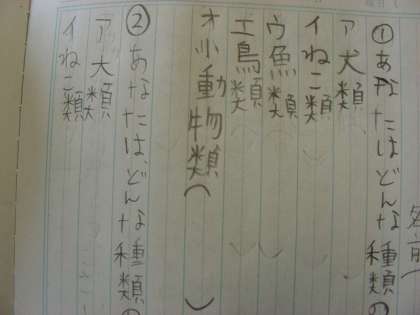 名前
①あなたはどんな種類の
ア犬類
イねこ類
ウ魚類
エ鳥類
オ小動物類( )
②あなたは、どんな種類の
ア犬類
イねこ類